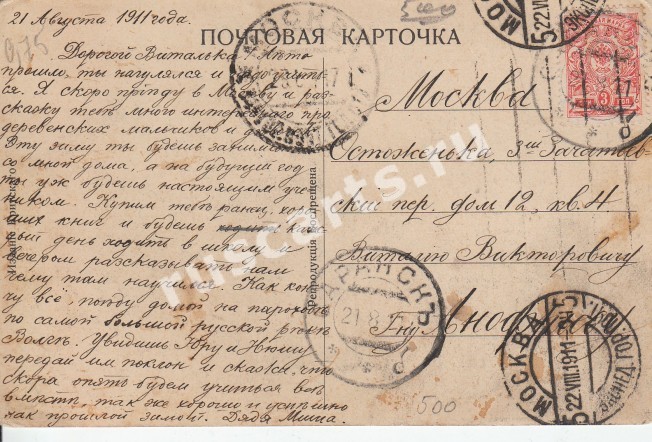 21 Августа 1911 года.
ПОЧТОВАЯ КАРТОЧКА
Дорогой Виталька! Лѣто
прошло, ты нагулялся и надо учить-
ся. Я скоро пріѣду в Москву и раз-
скажу тебѣ много интереснаго про
деревенских мальчиков и
Эту зиму ты будешь заниматься
со мной дома, а на будущій год
ты уж будешь настоящим уче-
ником. Купим тебѣ ранец, хоро-
ших книг и будешь каж-
дый день ходить в школу и
вечером разсказывать нам
чему там научился. Как кон-
чу всё, поѣду домой на пароходѣ
по самой большой русской рѣкѣ
Волгѣ. Увидишь Юру и Нюшу
передай им поклон и скажи, что
скоро опять будем учиться всѣ
вмѣстѣ, так же хорошо и успѣшно
как прошлой зимой. Дядя Миша.
Москва
Остоженька, Зачатьев-
скій пер. дом 12, кв. 4
Виталію Викторовичу
Гну Анофріеву
Репродукція воспрещена
САРАНСКЪ
21.8.11
МОСКВА
22.VIII.1911
3
500
ruscarts.ru